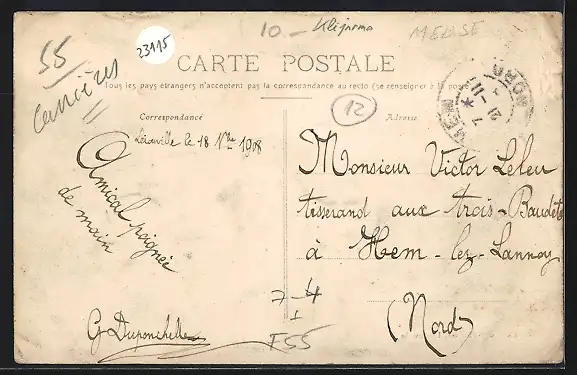 55
Carrières
23115
10 -
MEUSE
CARTE POSTALE
Tous les pays étrangers n'acceptent pas la correspondance au recto (se renseigner à la poste)
Correspondance
Lérouville le 18 9bre 1908
Amical poignée
de main
G Duponchelle
12
Adresse
HEM
NORD
7
21 - 11
Monsieur Victor Leleu
tisserand aux trois-Baudets
à Hem-lez-Lannoy
(Nord)
7-4
F55